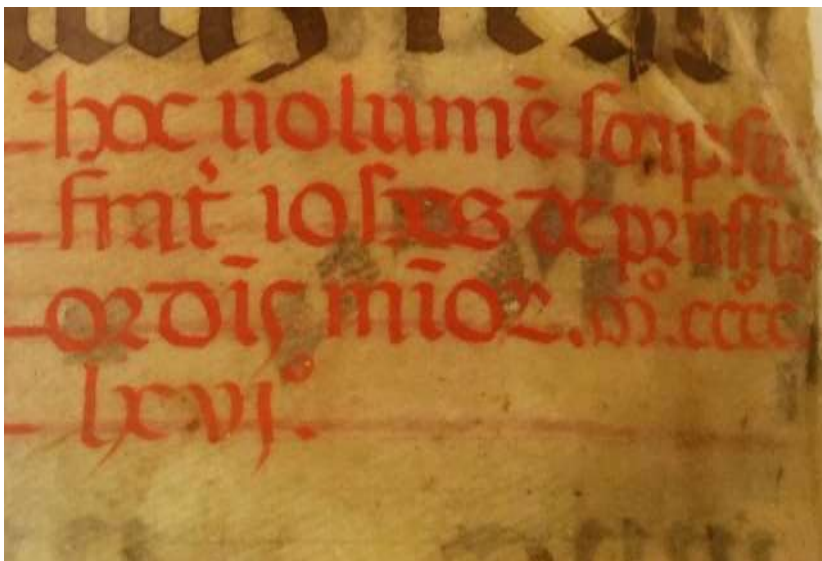 hoc uolumē scripsit
frat' iohes de prussia
ordīs mīoꝝ. m°. cccc°
lxvj°.